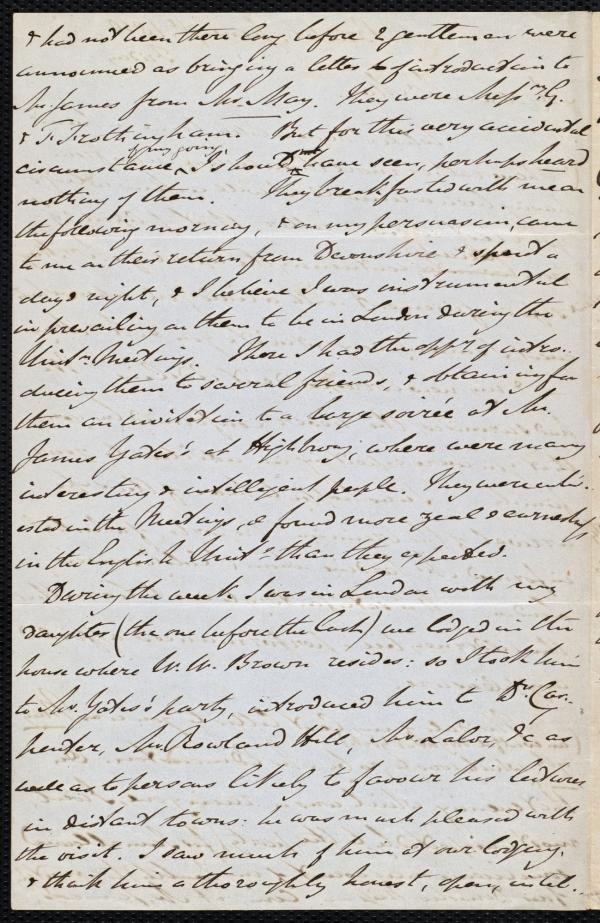 & had not been there long before 2 gentlemen were
announced as bringing a letter of introduction to
Mr. James from Mr. May. They were Messrs. G.
& F. Frothingham. But for this very accidental
circumstance ^of my going, I should not have seen, perhaps heard
nothing of them. They breakfasted with me on
the following morning, & on my persuasion, came
to me on their return from Devonshire & spent a
day & night, & I believe I was instrumental
in prevailing on them to be in London during the
Unitn. Meetings. There I had the oppy. of intro-
ducing them to several friends, & obtaining for
them an invitation to a large soirée at Mr.
James Yates's at Highbury, where were many
interesting & intelligent people. They were inter-
ested in the Meetings, & found more zeal & earnestness
in the English Unitns. than they expected.
During the week I was in London with my
daughter (the one before the last) we lodged in the
house where W. W. Brown resides: so I took him
to Mr. Yates's party, introduced him to Dr. Car-
penter, Mr. Rowland Hill, Mr. Lalor, &c as
well as to persons likely to favour his lectures
in distant towns: he was much pleased with
the visit. I saw much of him at our lodging,
& think him a thoroughly honest, open, intel-